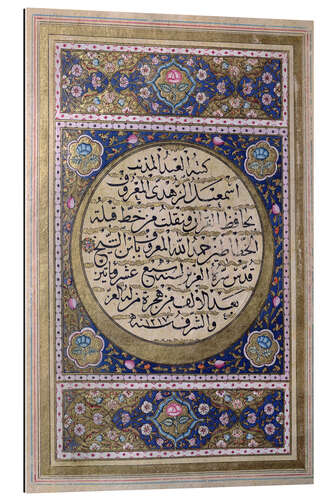 كتبه العبد المذنب
اسمعيل الزهدي المعروف
بحافظ القرآن ونقلت من خط قبلة
الخطاطين حمد الله المعروف بابن الشيخ
قدس سره العزيز لسبع عشر ومائتين
بعد الالف من هجرة من له العز
والشرف ١٢١٧ سنه